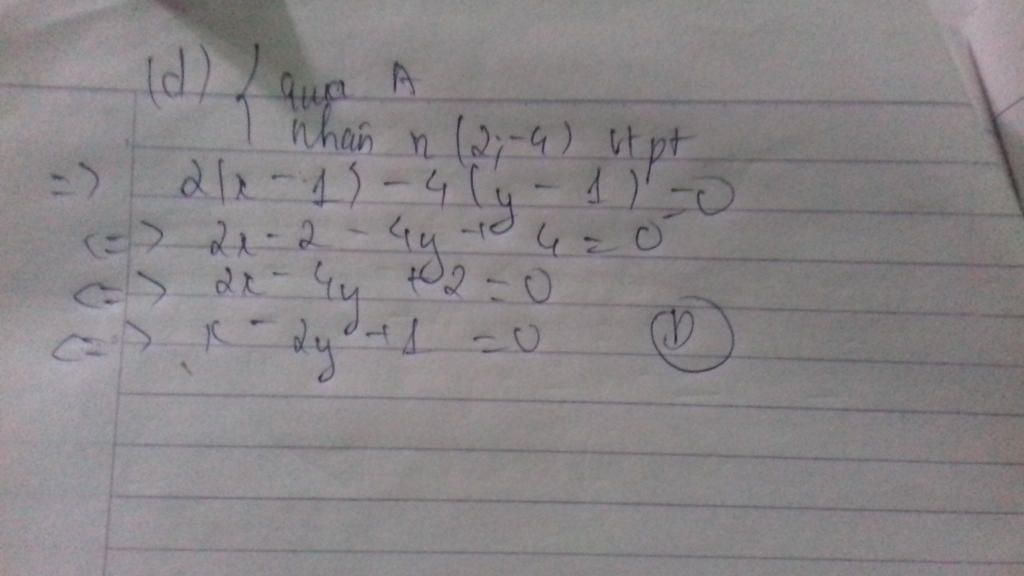 (d) { qua A
nhận n (2;-4) vtpt
=> 2(x - 1) - 4(y - 1) = 0
<=> 2x - 2 - 4y + 4 = 0
<=> 2x - 4y + 2 = 0
<=> x - 2y + 1 = 0 D